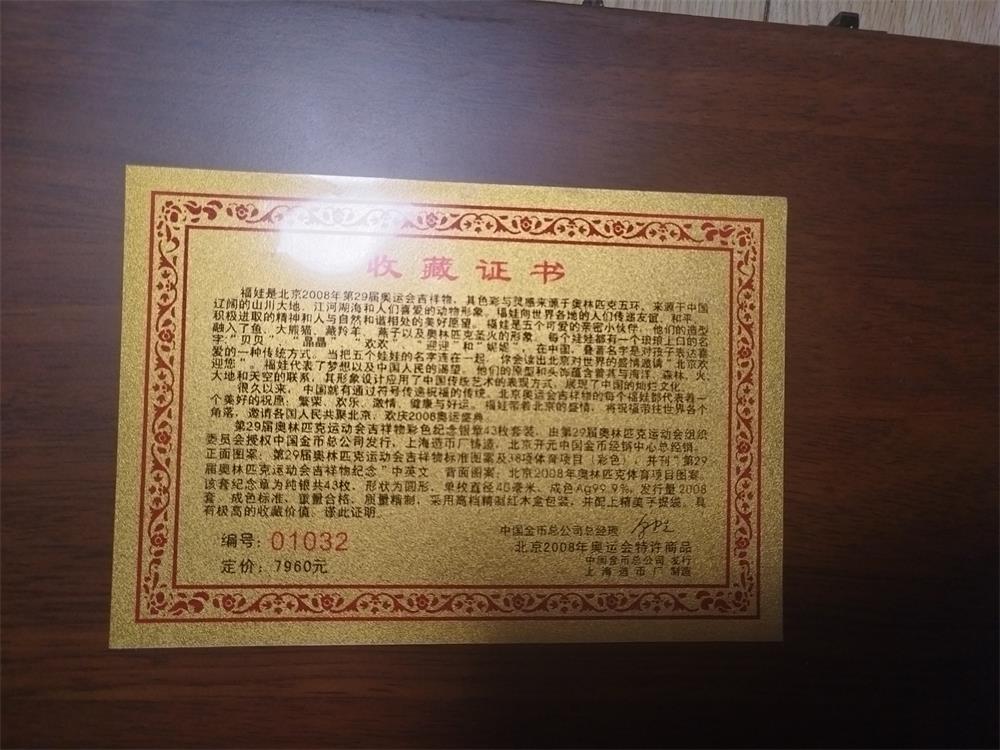 收藏证书
福娃是北京2008年第29届奥运会吉祥物，其色彩与灵感来源于奥林匹克五环，来源于中国
辽阔的山川大地、江河湖海和人们喜爱的动物形象。福娃向世界各地的人们传递友谊、和平、
积极进取的精神和人与自然和谐相处的美好愿望。福娃是五个可爱的亲密小伙伴，他们的造型
融入了鱼、大熊猫、藏羚羊、燕子以及奥林匹克圣火的形象。每个娃娃都有一个琅琅上口的名
字：“贝贝”、“晶晶”、“欢欢”、“迎迎”和“妮妮”，在中国，叠音名字是对孩子表达喜
爱的一种传统方式。当把五个娃娃的名字连在一起，你会读出北京对世界的盛情邀请“北京欢
迎您”。福娃代表了梦想以及中国人民的渴望。他们的原型和头饰蕴含着其与海洋、森林、火、
大地和天空的联系，其形象设计应用了中国传统艺术的表现方式，展现了中国的灿烂文化。
很久以来，中国就有通过符号传递祝福的传统。北京奥运会吉祥物的每个福娃都代表着一
个美好的祝愿：繁荣、欢乐、激情、健康与好运。福娃带着北京的盛情，将祝福带往世界各个
角落，邀请各国人民共聚北京，欢庆2008奥运盛典。
第29届奥林匹克运动会吉祥物彩色纪念银章43枚套装，由第29届奥林匹克运动会组织
委员会授权中国金币总公司发行，上海造币厂铸造，北京开元中国金币经销中心总经销。
正面图案：第29届奥林匹克运动会吉祥物标准图案及38项体育项目（彩色），并刊“第29
届奥林匹克运动会吉祥物纪念”中英文，背面图案：北京2008年奥林匹克体育项目图案。
该套纪念章为纯银共43枚，形状为圆形，单枚直径40毫米，成色Ag99.9%，发行量2008
套。成色标准，重量合格，质量精制，采用高档精制红木盒包装，并配上精美手提袋，具
有极高的收藏价值，谨此证明。
中国金币总公司总经理
编号：01032
北京2008年奥运会特许商品
定价：7960元
中国金币总公司 发行
上海造币厂 制造